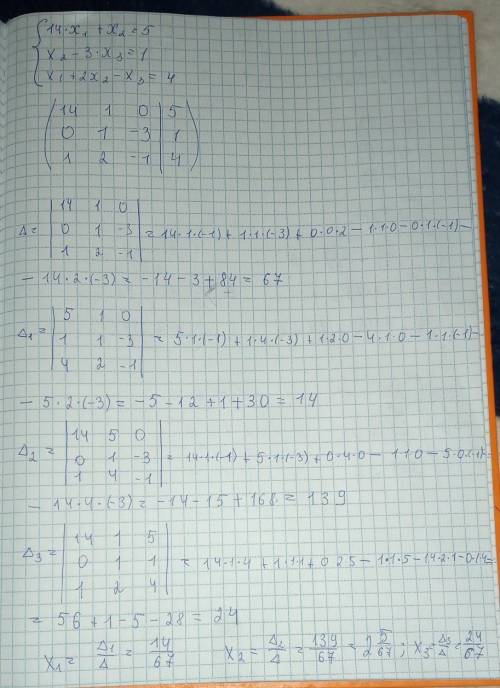 14·x₁ + x₂ = 5
x₂ - 3·x₃ = 1
x₁ + 2x₂ - x₃ = 4
14 1 0 | 5
0 1 -3 | 1
1 2 -1 | 4
14 1 0
Δ = 0 1 -3 = 14·1·(-1) + 1·1·(-3) + 0·0·2 - 1·1·0 - 0·1·(-1) -
1 2 -1
- 14·2·(-3) = -14 - 3 + 84 = 67
5 1 0
Δ₁ = 1 1 -3 = 5·1·(-1) + 1·4·(-3) + 1·2·0 - 4·1·0 - 1·1·(-1) -
4 2 -1
- 5·2·(-3) = -5 - 12 + 1 + 30 = 14
14 5 0
Δ₂ = 0 1 -3 = 14·1·(-1) + 5·1·(-3) + 0·4·0 - 1·1·0 - 5·0·(-1) -
1 4 -1
- 14·4·(-3) = -14 - 15 + 168 = 139
14 1 5
Δ₃ = 0 1 1 = 14·1·4 + 1·1·1 + 0·2·5 - 1·1·5 - 14·2·1 - 0·1·4 =
1 2 4
= 56 + 1 - 5 - 28 = 24
x₁ = Δ₁/Δ = 14/67 x₂ = Δ₂/Δ = 139/67 = 2 5/67 ; x₃ = Δ₃/Δ = 24/67